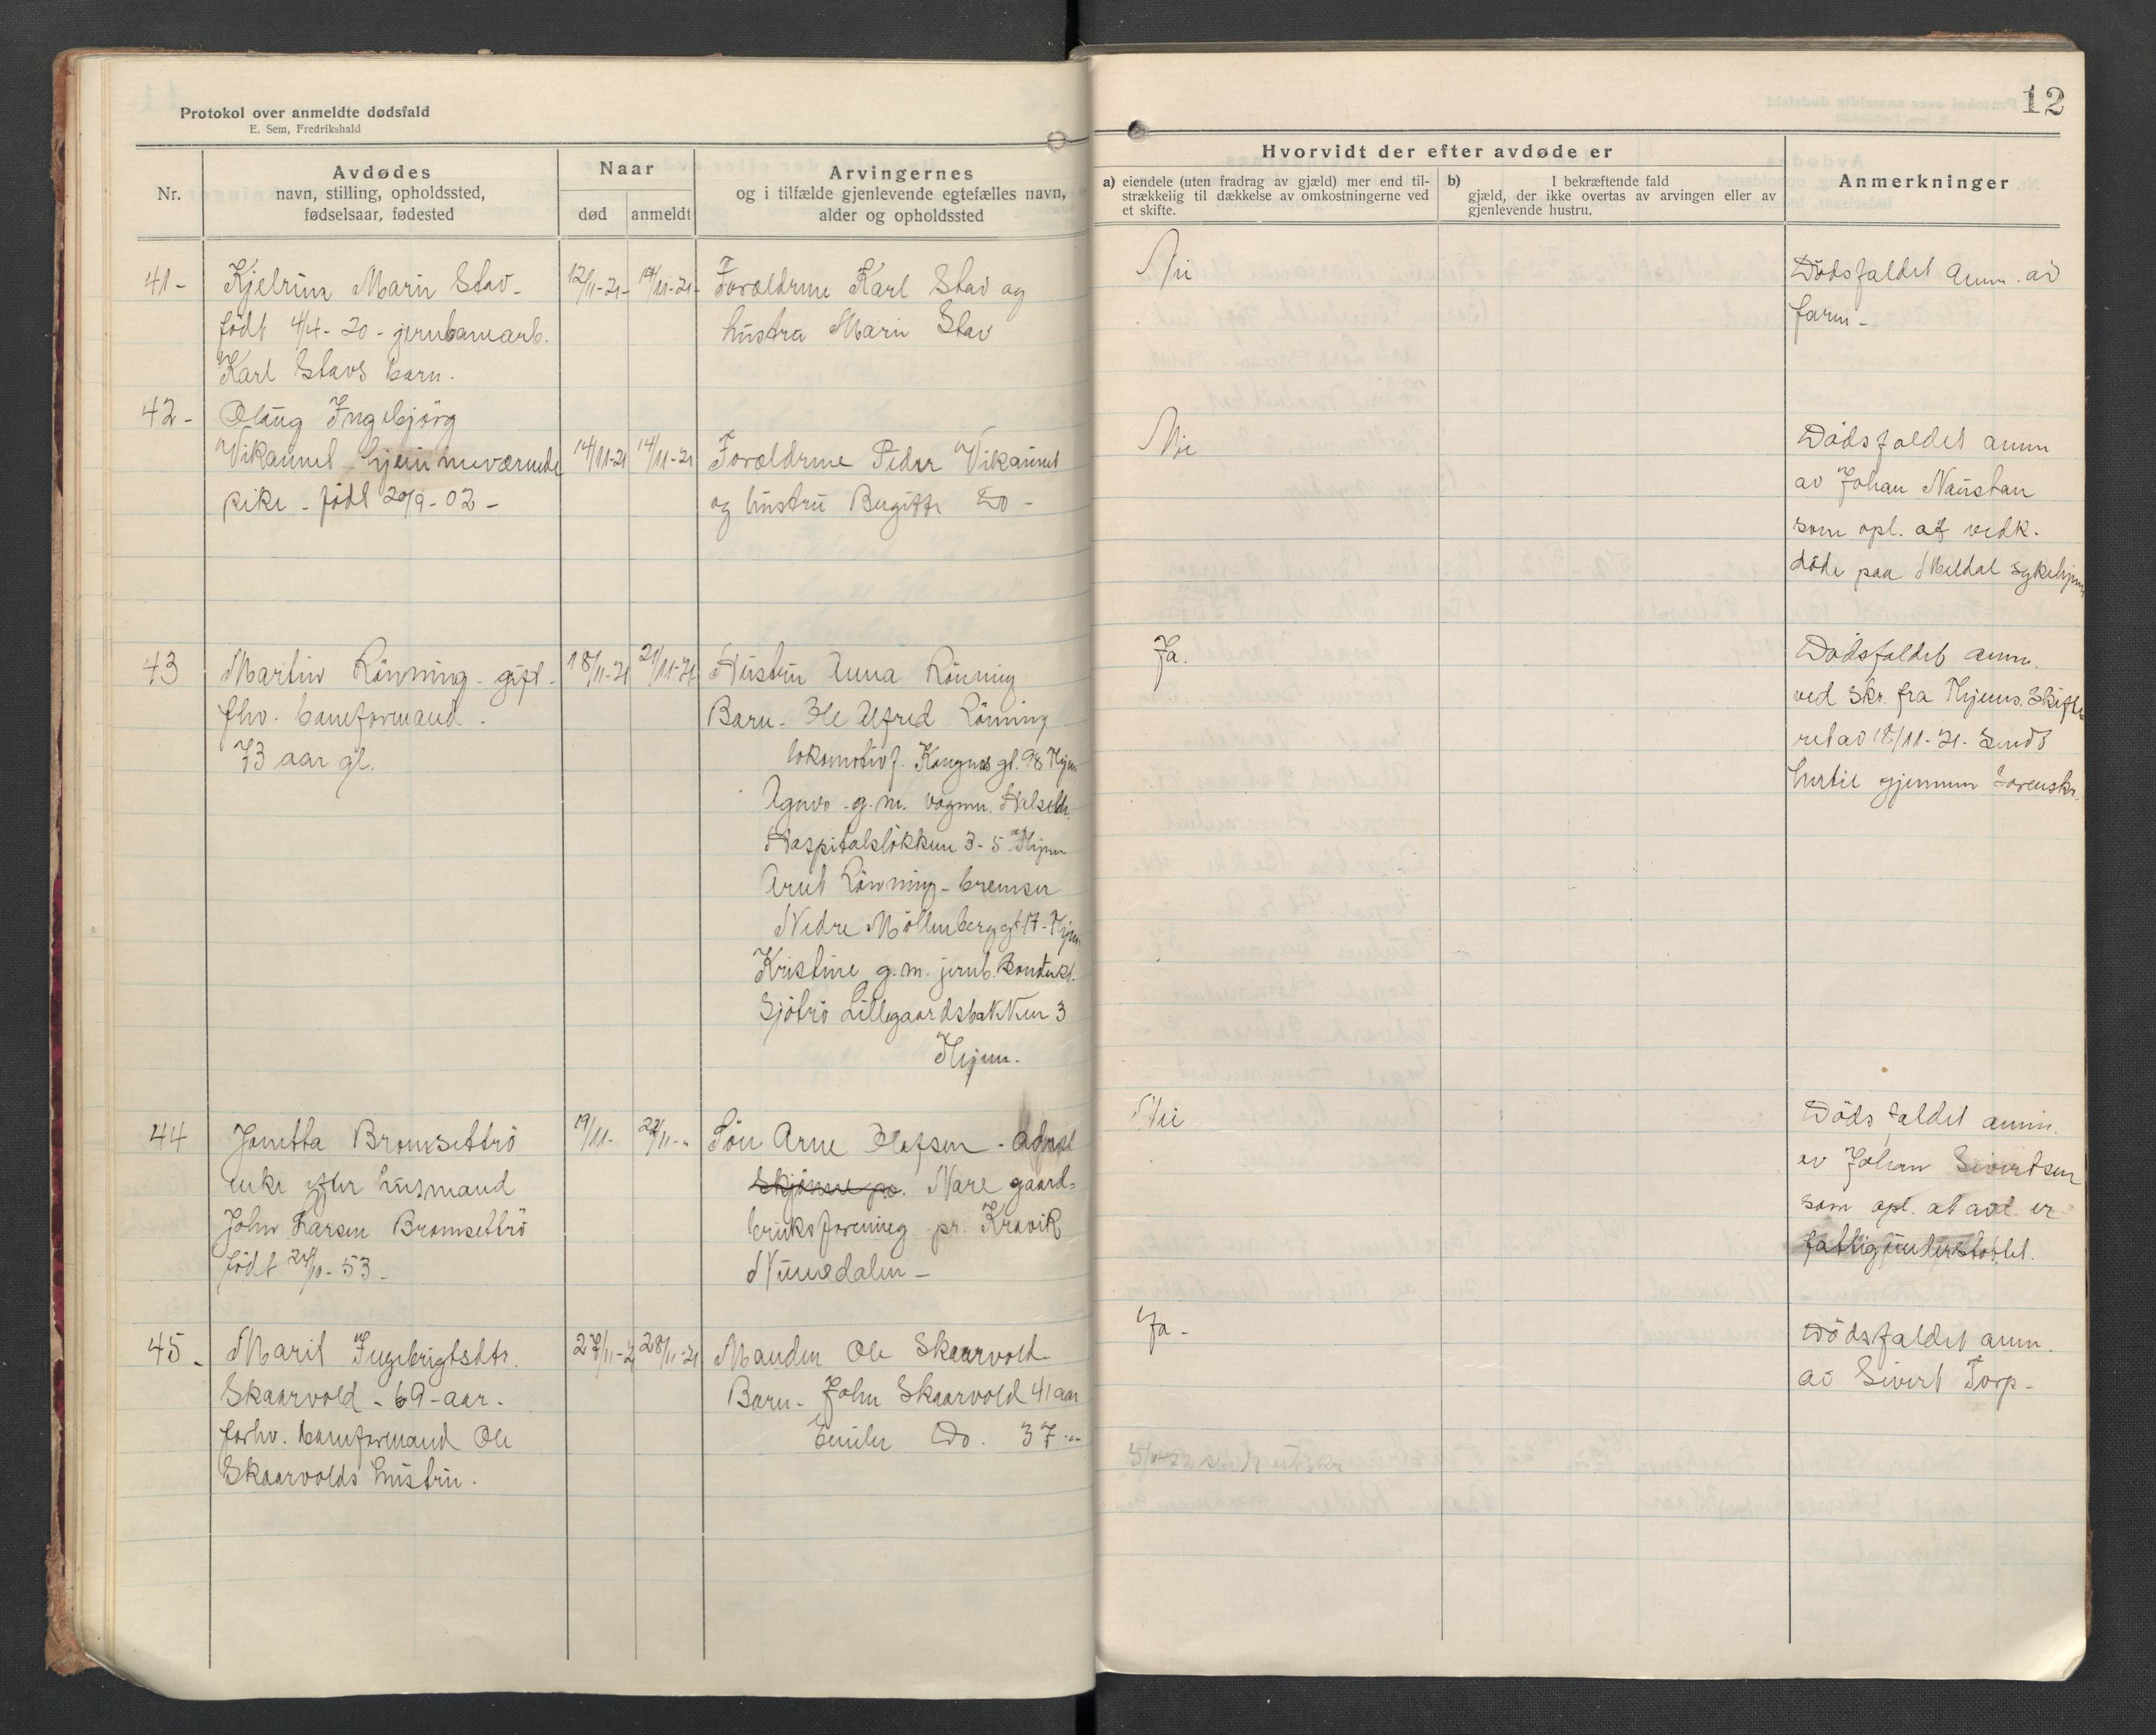 Protokol over anmeldte dødsfald
E. Sem, Fredrikshald
12
Nr.
Avdødes
navn, stilling, opholdssted,
fødselsaar, fødested
Naar
død
anmeldt
Arvingernes
og i tilfælde gjenlevende egtefælles navn,
alder og opholdssted
Hvorvidt der efter avdøde er
a) eiendele (uten fradrag av gjæld) mer end til-
strækkelig til dækkelse av omkostningerne ved
et skifte.
b) I bekræftende fald
gjæld, der ikke overtas av arvingen eller av
gjenlevende hustru.
Anmerkninger
41-
Marie Stav-
født 4/4-20-
Karl Stavs barn.
12/11-21-
14/11-21-
Forældrene Karl Stav og
hustru Marie Stav
Nei
Dødsfaldet anm. av
faren-
42-
Olaug Ingebjörg
hjemmeværende
pike - född 20/9-02-
14/11-21
14/11-21
Forældrene Peder
og hustru Do-
Nei
Dödsfaldet anm
av Johan Naustan
som opl. at vedk.
döde paa Meldal sykehjem
43
Martin Rönning - gift-
fhv. baneformand.
73 aar gl.
18/11-21
21/11-21
Hustru Anna Rönning
Barn- Ole Alfred Rönning
lokomotivf. Kongens gt. 98 Thjem
g.m. vognm.
Hospitalslökken 3-5 Thjem
Arnt Rönning - bremser
Nedre Möllenberg gt 17- Thjem
Kristine g.m. jernb. kondukt.
Lillegaardsbakken 3
Thjem.
Ja.
Dödsfaldet anm.
ved skr. fra Thjems. Skifte
ret av 18/11-21- sendt
hertil gjennem Sorenskr.
44
Bromsettrö
enke efter husmand
John Larsen Bromsettrö
född 24/10-53-
19/11-
Sön Arne Olafsen -
Nore gaard-
bruksforening pr. Kravik
Numedalen-
Nei
Dödsfaldet anm.
av Johan Sivertsen
som opl. at avd. er
fattigunderstöttet.
45-
Marit Ingebrigtsdtr.
Skaarvold - 69-aar.
forhv. baneformand Ole
Skaarvolds hustru.
27/11-21
28/11-21
Manden Ole Skaarvold-
Barn- John Skaarvold 41 aar
Do. 37 -"-
Ja-
Dödsfaldet anm.
av Sivert Torp-